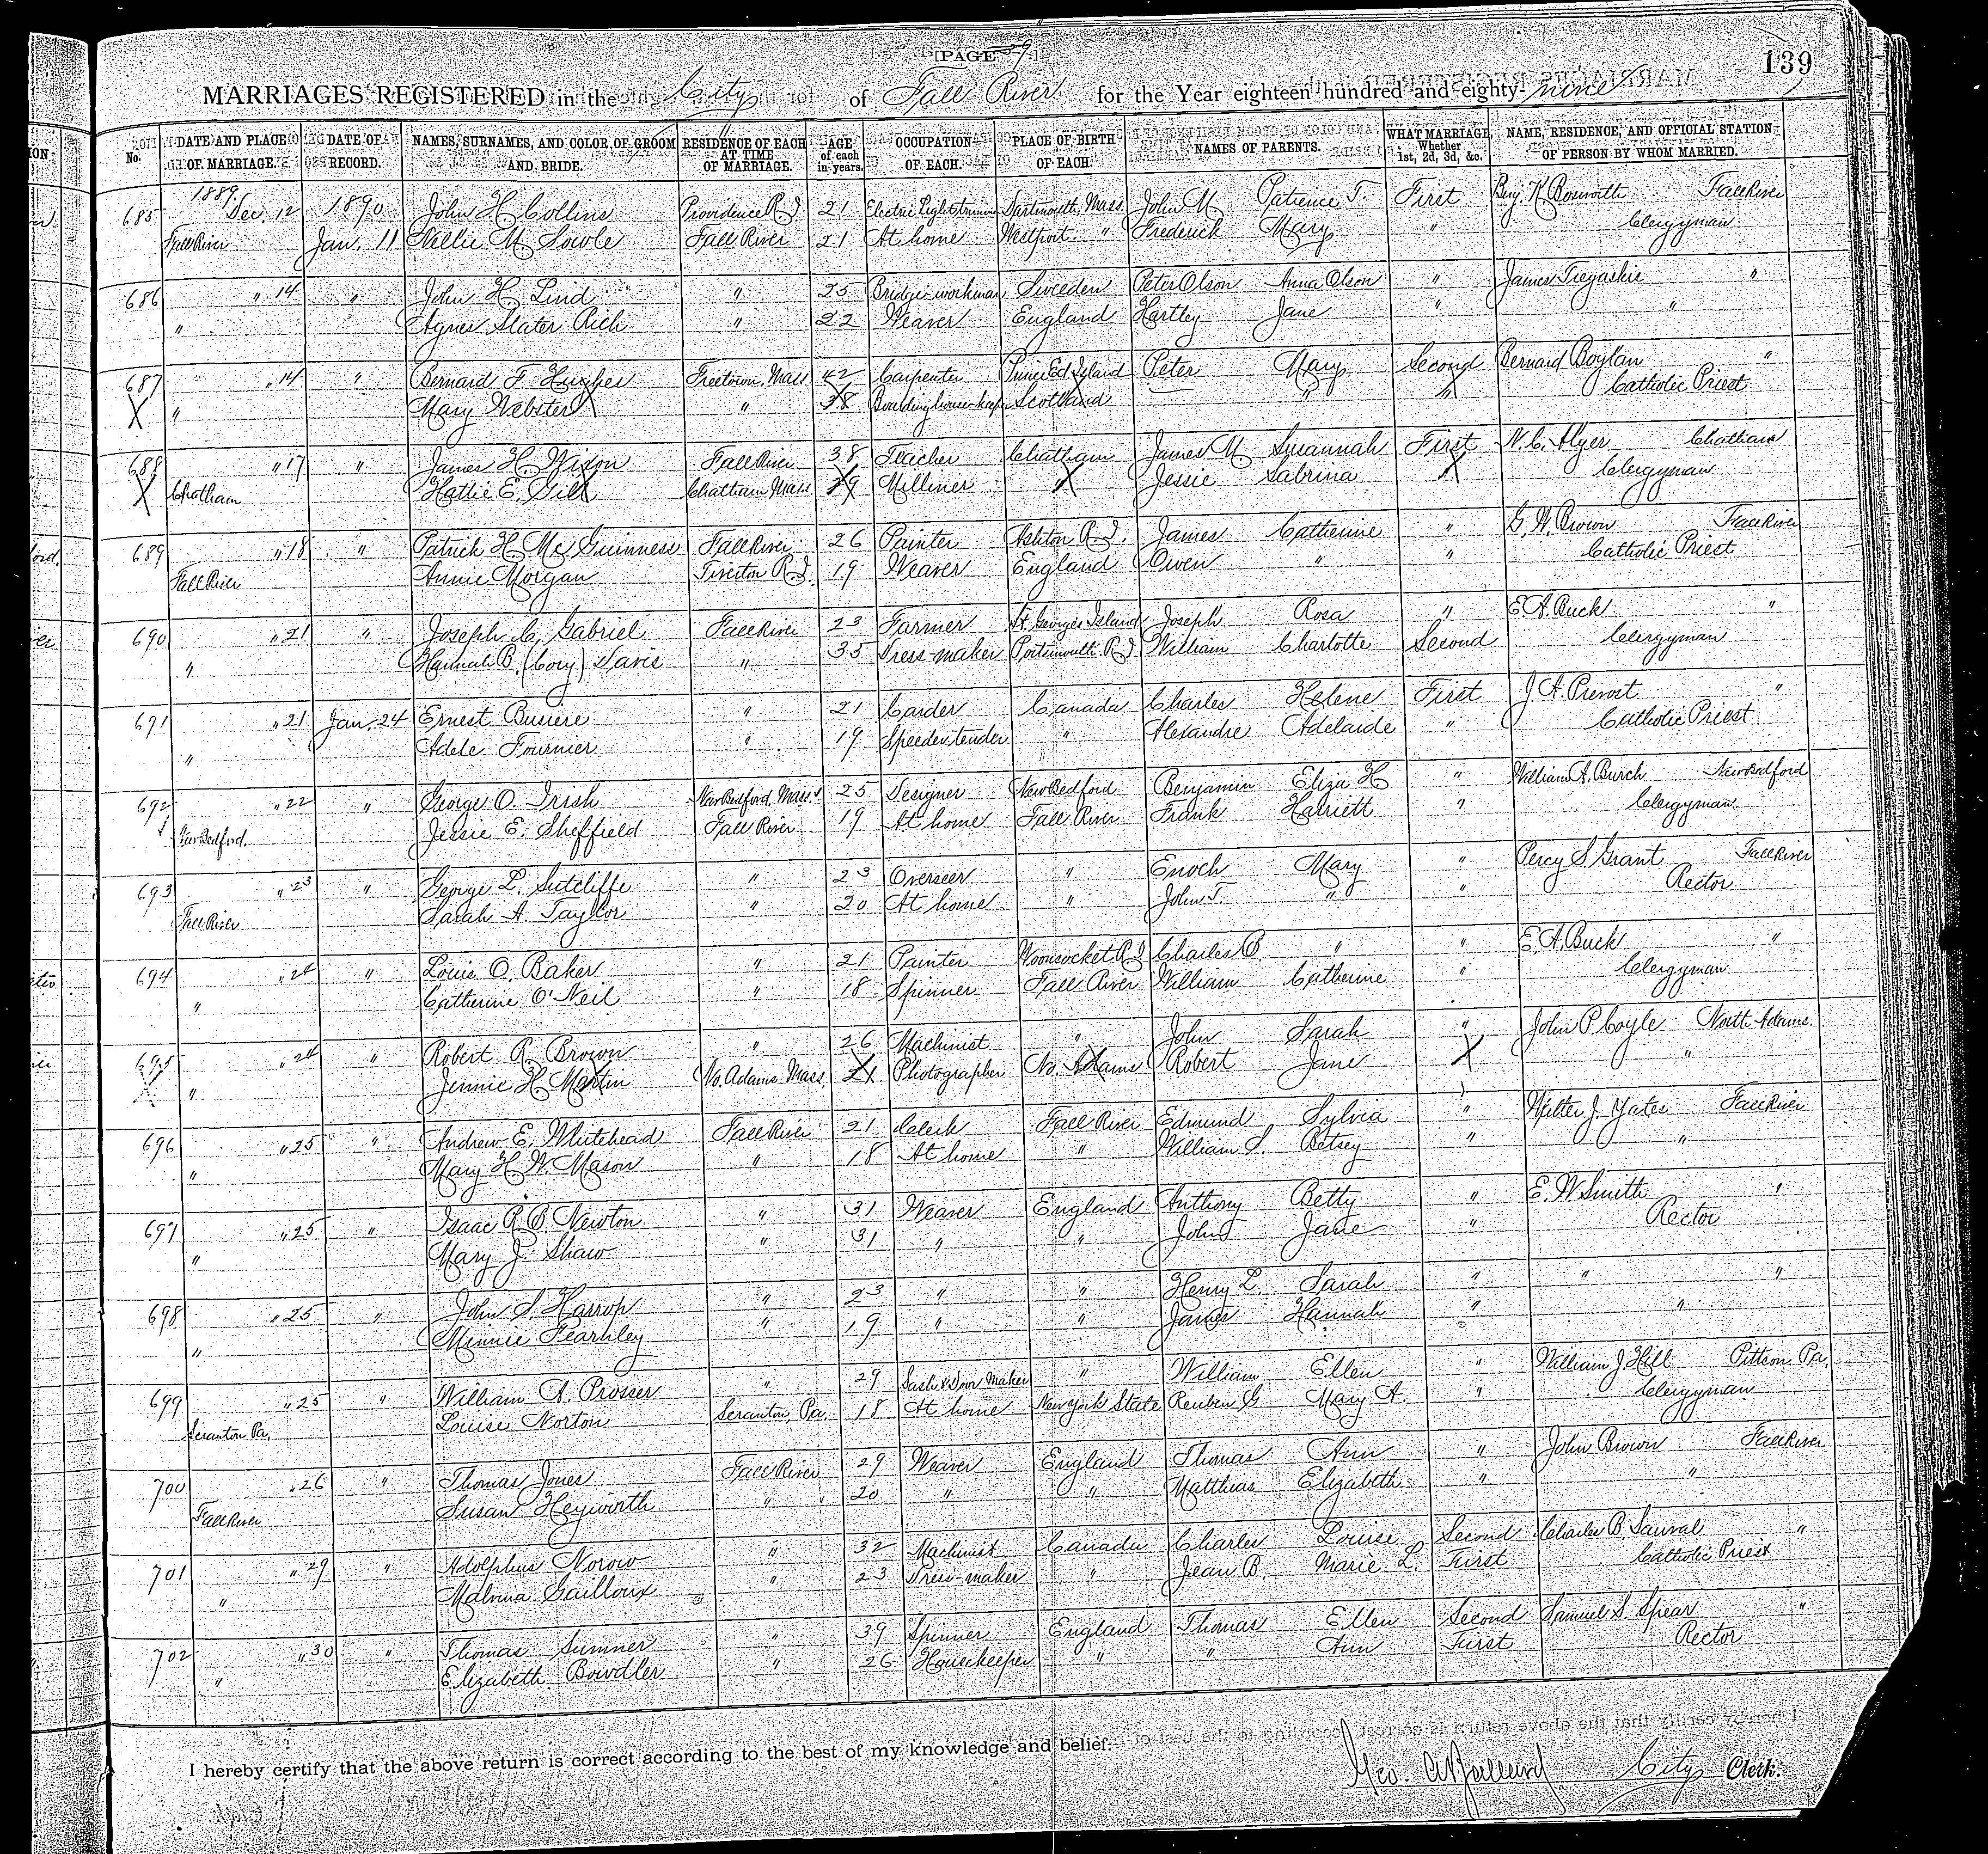 [PAGE 39.]
139
MARRIAGES REGISTERED in the City of Fall River for the Year eighteen hundred and eighty-nine
No. DATE AND PLACE OF MARRIAGE. DATE OF RECORD. NAMES, SURNAMES, AND COLOR, OF GROOM AND BRIDE. RESIDENCE OF EACH AT TIME OF MARRIAGE. AGE of each in years. OCCUPATION OF EACH. PLACE OF BIRTH OF EACH. NAMES OF PARENTS. WHAT MARRIAGE, Whether 1st, 2d, 3d, &c. NAME, RESIDENCE, AND OFFICIAL STATION OF PERSON BY WHOM MARRIED.
685 1889. Dec. 12 1890 John H. Collins Providence R.I. 21 Electric Light trimmer Dartmouth, Mass. John M. Patience T. First Benj. K. Bosworth Fall River
Fall River Jan. 11 Nellie M. Sowle Fall River 21 At home Westport " Frederick Mary " Clergyman
686 " 14 " John H. Lind " 25 Bridge-workman Sweden Peter Olson Anna Olson " James Tregaskis "
" Agnes Slater Rich " 22 Weaver England Hartley Jane " "
687 " " 14 " Bernard F. Hughes Freetown, Mass 42 Carpenter Prince Ed. Island Peter Mary Second Bernard Boylan "
X " Mary Webster " 38 Boarding house-keeper Scotland — " " Catholic Priest
688 " 17 " James H. Wixon Fall River 38 Teacher Chatham James M. Susannah First N. C. Alger Chatham
X Chatham Hattie E. Gill Chatham Mass 29 Milliner " Jessie Sabrina Clergyman
689 " 18 " Patrick H. Mc Guinness Fall River 26 Painter Ashton R.I. James Catherine " G. W. Brown Fall River
Fall River Annie Morgan Tiverton R.I. 19 Weaver England Owen " " Catholic Priest
690 " 21 " Joseph C. Gabriel Fall River 23 Farmer St. Georges Island Joseph Rosa " E. A. Buck "
" Hannah B. (Cory) Davis " 35 Dress-maker Portsmouth R.I. William Charlotte Second Clergyman
691 " 21 Jan. 24 Ernest Busiere " 21 Carder Canada Charles Helene First J. A. Prevost "
" Adele Fournier " 19 Speeder tender " Alexandre Adelaide " Catholic Priest
692 " 22 " George O. Irish New Bedford, Mass. 25 Designer New Bedford Benjamin Eliza H " William A. Burch New Bedford
New Bedford. Jessie E. Sheffield Fall River 19 At home Fall River Frank Harriett " Clergyman.
693 " 23 " George L. Sutcliffe " 23 Overseer " Enoch Mary " Percy S. Grant Fall River
Fall River Sarah A. Taylor " 20 At home " John T. " " Rector
694 " 24 " Louis O. Baker " 21 Painter Woonsocket R.I. Charles O. " " E. A. Buck "
" Catherine O'Neil " 18 Spinner Fall River William Catherine " Clergyman
695 " 24 " Robert R. Brown " 26 Machinist " John Sarah " John P. Coyle North Adams.
X " Jennie H. Martin No. Adams Mass. 21 Photographer No. Adams Robert Jane "
696 " 25 " Andrew E. Whitehead Fall River 21 Clerk Fall River Edmund Sylvia " Walter J. Yates Fall River
" Mary H. W. Mason " 18 At home " William S. Betsey " "
697 " 25 " Isaac R. B. Newton " 31 Weaver England Anthony Betty " E. W. Smith "
" Mary J. Shaw " 31 " " John Jane " Rector
698 " 25 " John S. Harrop " 23 " " Henry L. Sarah " " "
" Minnie Fearnley " 19 " " James Hannah " "
699 " 25 " William A. Prosser " 29 Sash & Door Maker " William Ellen " William J. Hill Pa.
Scranton Pa. Louise Norton Scranton, Pa. 18 At home New York State Reuben G Mary A. " Clergyman
700 " 26 " Thomas Jones Fall River 29 Weaver England Thomas Ann " John Brown Fall River
Fall River Susan Heyworth " 20 " " Matthias Elizabeth " "
701 " 29 " Adolphus Norow " 32 Machinist Canada Charles Louise Second Charles B. Sauval "
" Malvina Gailloux " 23 Dress-maker " Jean B. Marie L. First Catholic Priest
702 " 30 " Thomas Sumner " 39 Spinner England Thomas Ellen Second Samuel S. Spear "
" Elizabeth Bowdler " 26 Housekeeper " " Ann First Rector
I hereby certify that the above return is correct according to the best of my knowledge and belief:
Geo. A. Ballard City Clerk.